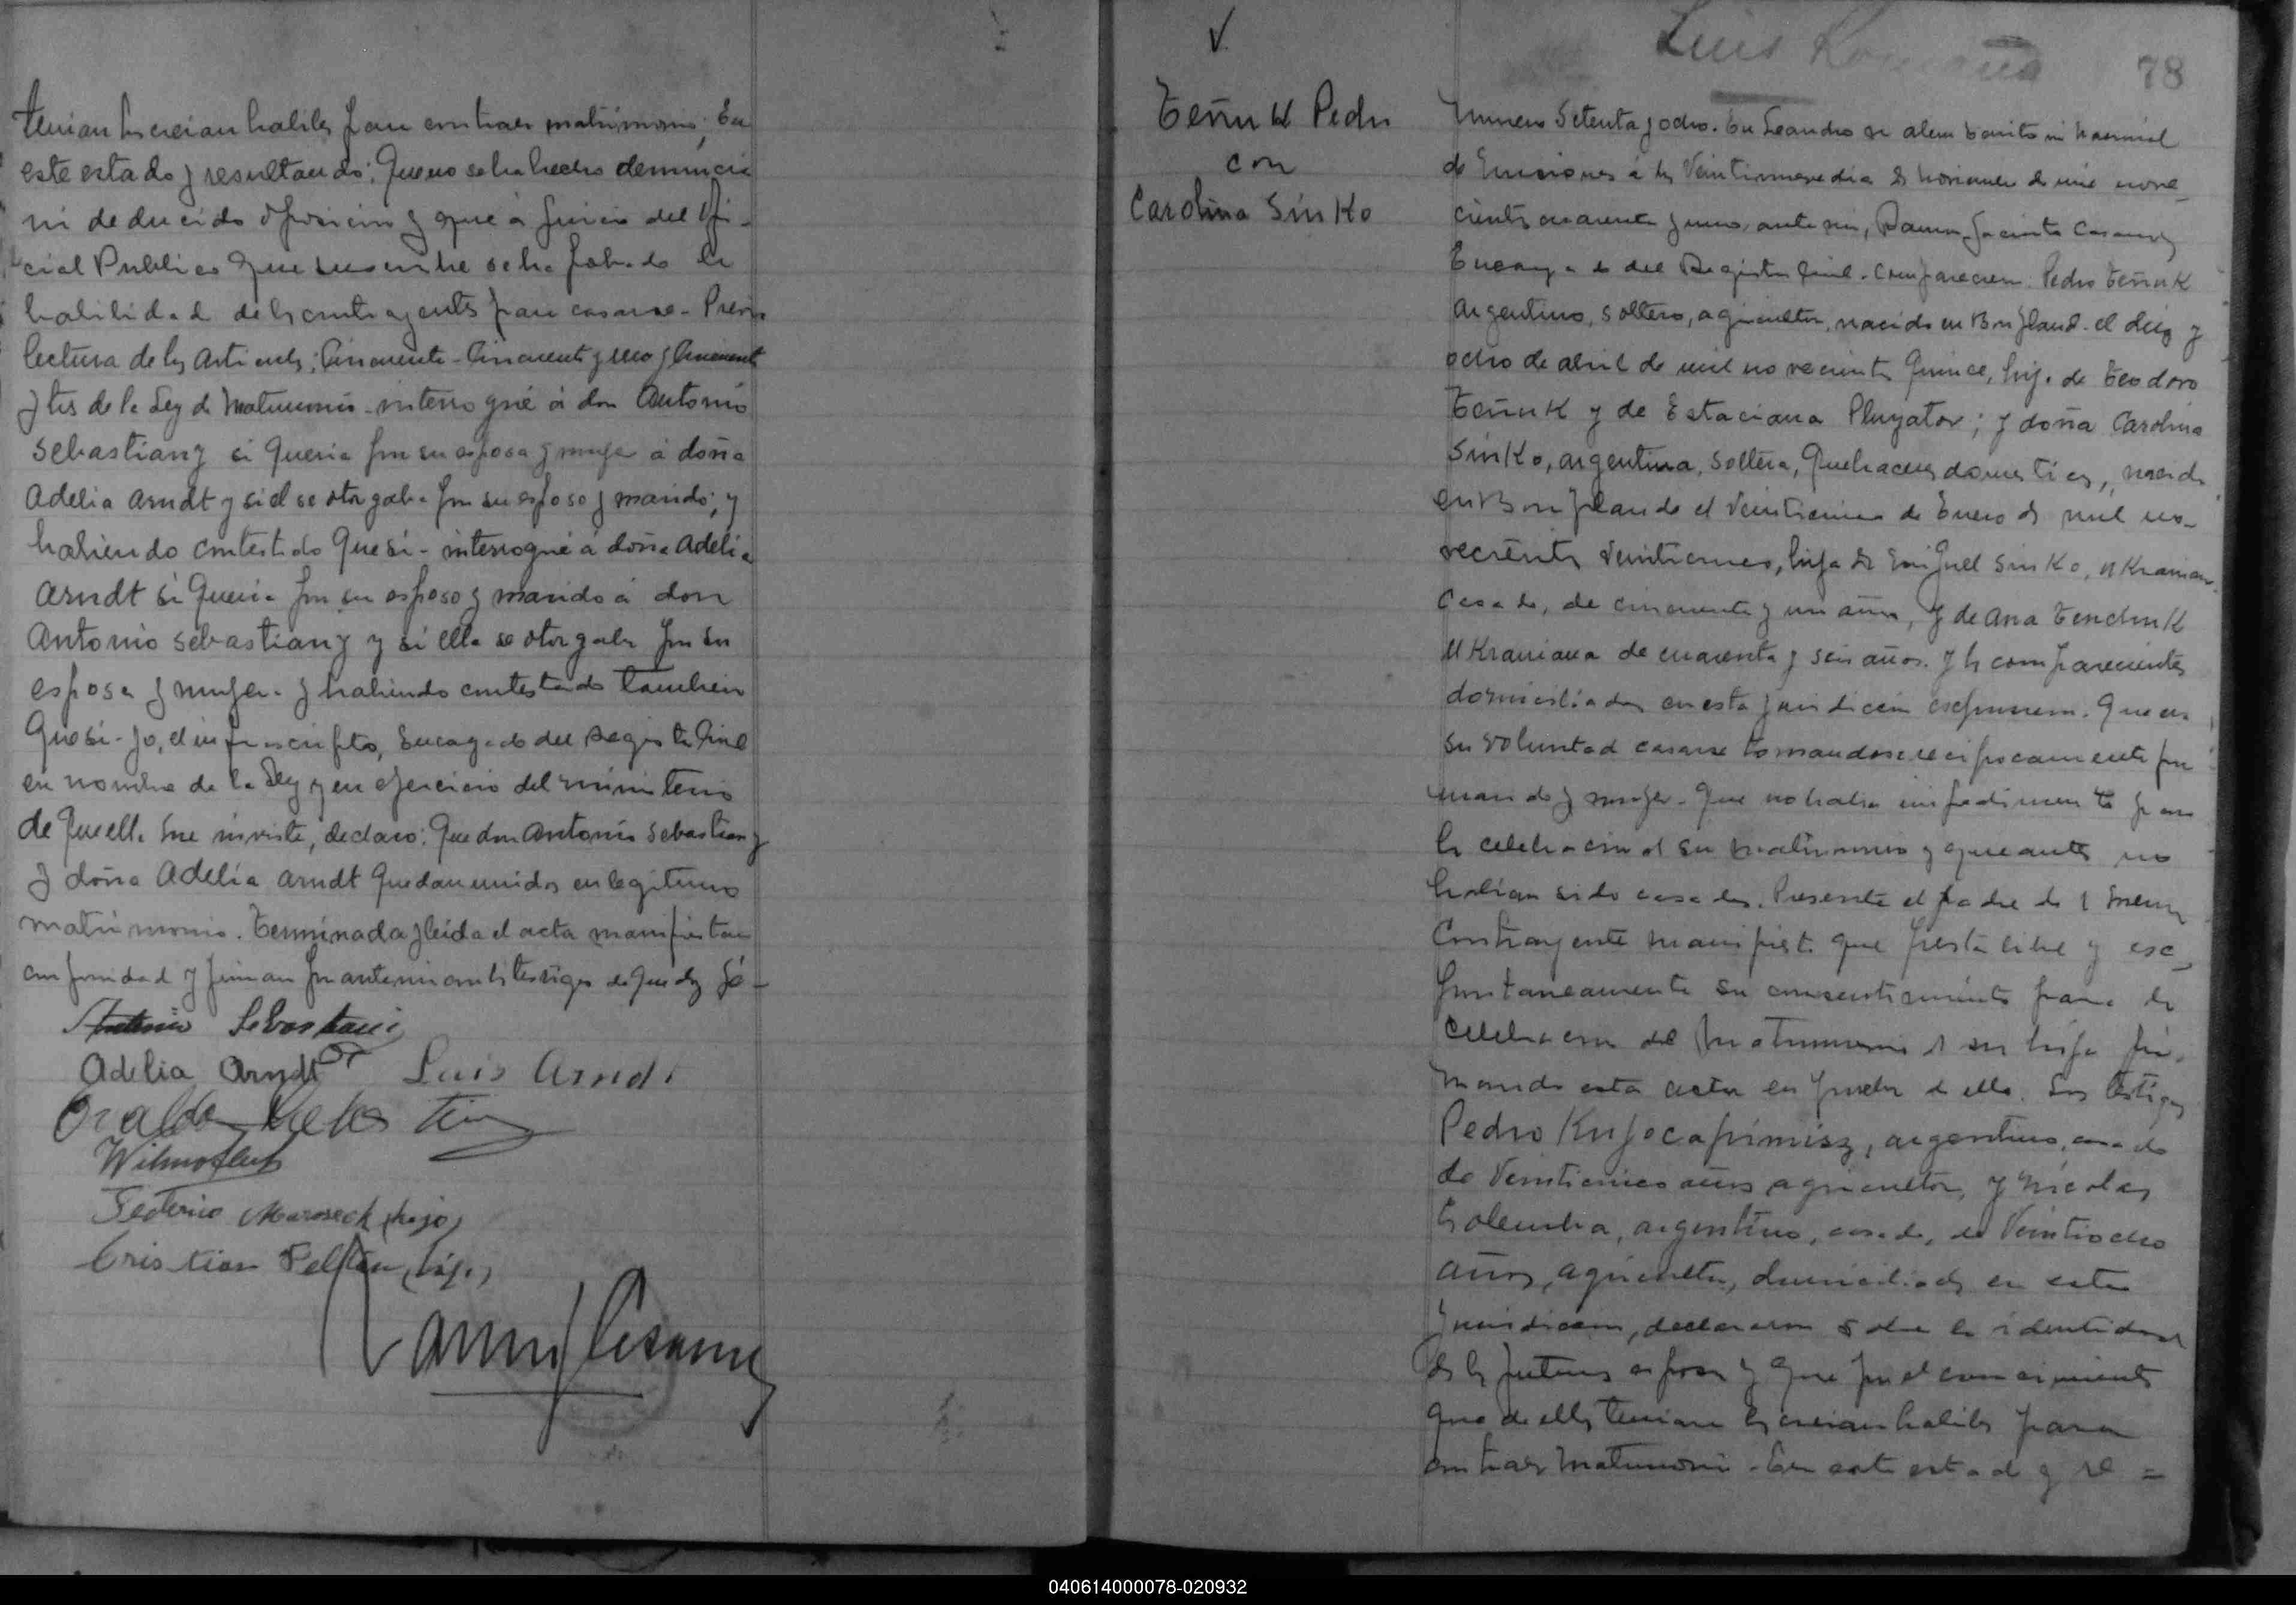 tenian los creian habiles para contraer matrimonio; En
este estado y resultando: Que no se ha hecho denuncia
ni deducido oposicion y que a juicio del Ofi-
cial Publico que suscribe se ha probado la
habilidad de los contrayentes para casarse - Previa
lectura de los articulos: Cincuenta - Cincuenta y uno y Cincuenta
y tres de la Ley de Matrimonio - interrogué á don Antonio
Sebastiany si queria por su esposa y mujer á doña
Adelia Arndt y si el se otorgaba por su esposo y marido; y
habiendo contestado que si - interrogué á doña Adelia
Arndt si queria por su esposo y marido á don
Antonio Sebastiany y si ella se otorgaba por su
esposa y mujer - y habiendo contestado tambien
que si - yo, el infrascripto, Encargado del Registro Civil
en nombre de la Ley y en ejercicio del ministerio
de que ella me inviste, declaro: Que don Antonio Sebastiany
y doña Adelia Arndt quedan unidos en legitimo
matrimonio. Terminada y leida el acta manifiestan
conformidad y firman por ante mi con los testigos de que doy fé -
Antonio Sebastiani
Adelia Arndt Luis Arndt
Federico Maroseck (hijo)
Cristian (hijo)
Teñuk Pedro
con
Carolina Sinko
Luis
78
Numero Setenta y ocho. En Leandro N Alem Territorio Nacional
de Misiones á los Veintinueve dias de Noviembre de mil nove-
cientos cuarenta y uno, ante mi, Ramon Jacinto
Encargado del Registro Civil - Comparecen: Pedro Teñuk
argentino, soltero, agricultor, nacido en Bonpland - el diez y
ocho de abril de mil novecientos quince, hijo de Teodoro
Teñuk y de Estaciana Plugator; y doña Carolina
Sinko, argentina, soltera, quehaceres domesticos, nacida
en Bonpland el Veinticinco de Enero de mil no-
vecientos Veinticinco, hija de Miguel Sinko, Ukraniano
Casado, de cincuenta y un años, y de Ana Tenchuk
Ukraniana de cuarenta y seis años. y los comparecientes
domiciliados en esta juridicion exponen. Que es
su voluntad casarse tomandose reciprocamente por
marido y mujer - que no habia impedimento para
la celebracion de su matrimonio y que antes no
habian sido casados. Presente el padre de la menor
Contrayente manifiesta que presta libre y es-
pontaneamente su consentimiento para la
Celebracion del Matrimonio de su hija fir-
mando esta acta en prueba de ello. Los testigos
Pedro argentino, casado
de Veinticinco años agricultor, y Nicolas
argentino, casado, de Veintiocho
años, agricultor, domiciliados en esta
juridicion, declararon sobre la identidad
de los futuros esposos y que por el conocimiento
que de ellos tenian los creian habiles para
contraer Matrimonio - En este estado y re =
040614000078-020932